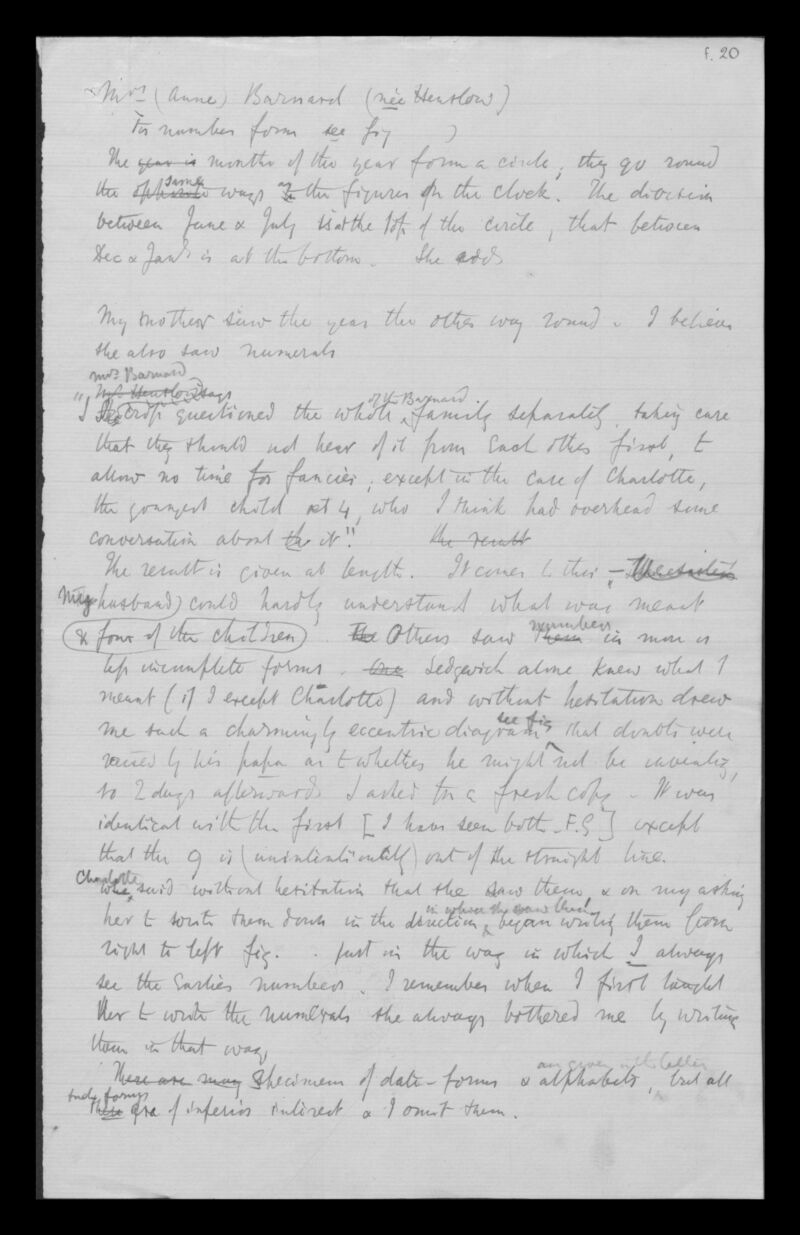 f. 20
Mrs (Anne) Barnard (née Henslow)
For number form see fig )
The year is months of the year form a circle; they go round
the opposite same ways as the figures on the clock. The division
between June & July is at the top of the circle, that between
Dec & Jany is at the bottom. She adds
My mother saw the year the other way round. I believe
she also saw numerals
Mrs Barnard
Mrs Henslow says
of the Barnard
"I questioned the whole family separately, taking care
that they should not hear of it from each other first, to
allow no time for fancies; except in the case of Charlotte,
the youngest child æt 4, who I think had overheard some
conversation about the it". the result
The result is given at length. It comes to this,
My husband) could hardly understand what was meant
& four of the children). The Others saw them numbers in more or
less incomplete forms. One Sedgwick alone knew what I
meant (if I except Charlotte) and without hesitation drew
me such a charmingly eccentric diagram see fig that doubts were
raised by his papa as to whether he might not be inventing,
so 2 days afterwards I asked for a fresh copy. It was
identical with the first [I have seen both. F.G.] except
that the 9 is (unintentionally) out of the straight line.
Charlotte
who said without hesitation that she saw them, & on my asking
her to write them down in the direction in which she saw them began writing them from
right to left fig. . just in the way in which I always
see the earlier numbers. I remember when I first taught
her to write the numerals she always bothered me by writing
them in that way.
are given with letter
There are many Specimens of date-forms & alphabets, but all
such forms
These are of inferior interest & I omit them.